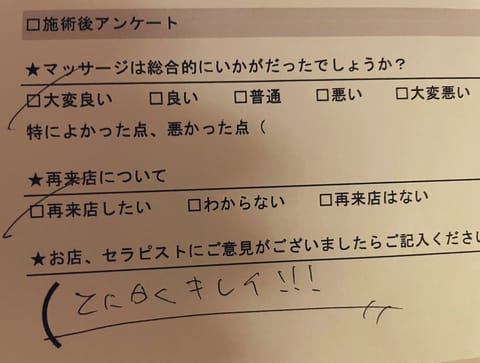 □施術後アンケート
★マッサージは総合的にいかがだったでしょうか？
□大変良い □良い □普通 □悪い □大変悪い
特によかった点、悪かった点（
★再来店について
□再来店したい □わからない □再来店はない
★お店、セラピストにご意見がございましたらご記入くださ
とに白くキレイ!!!